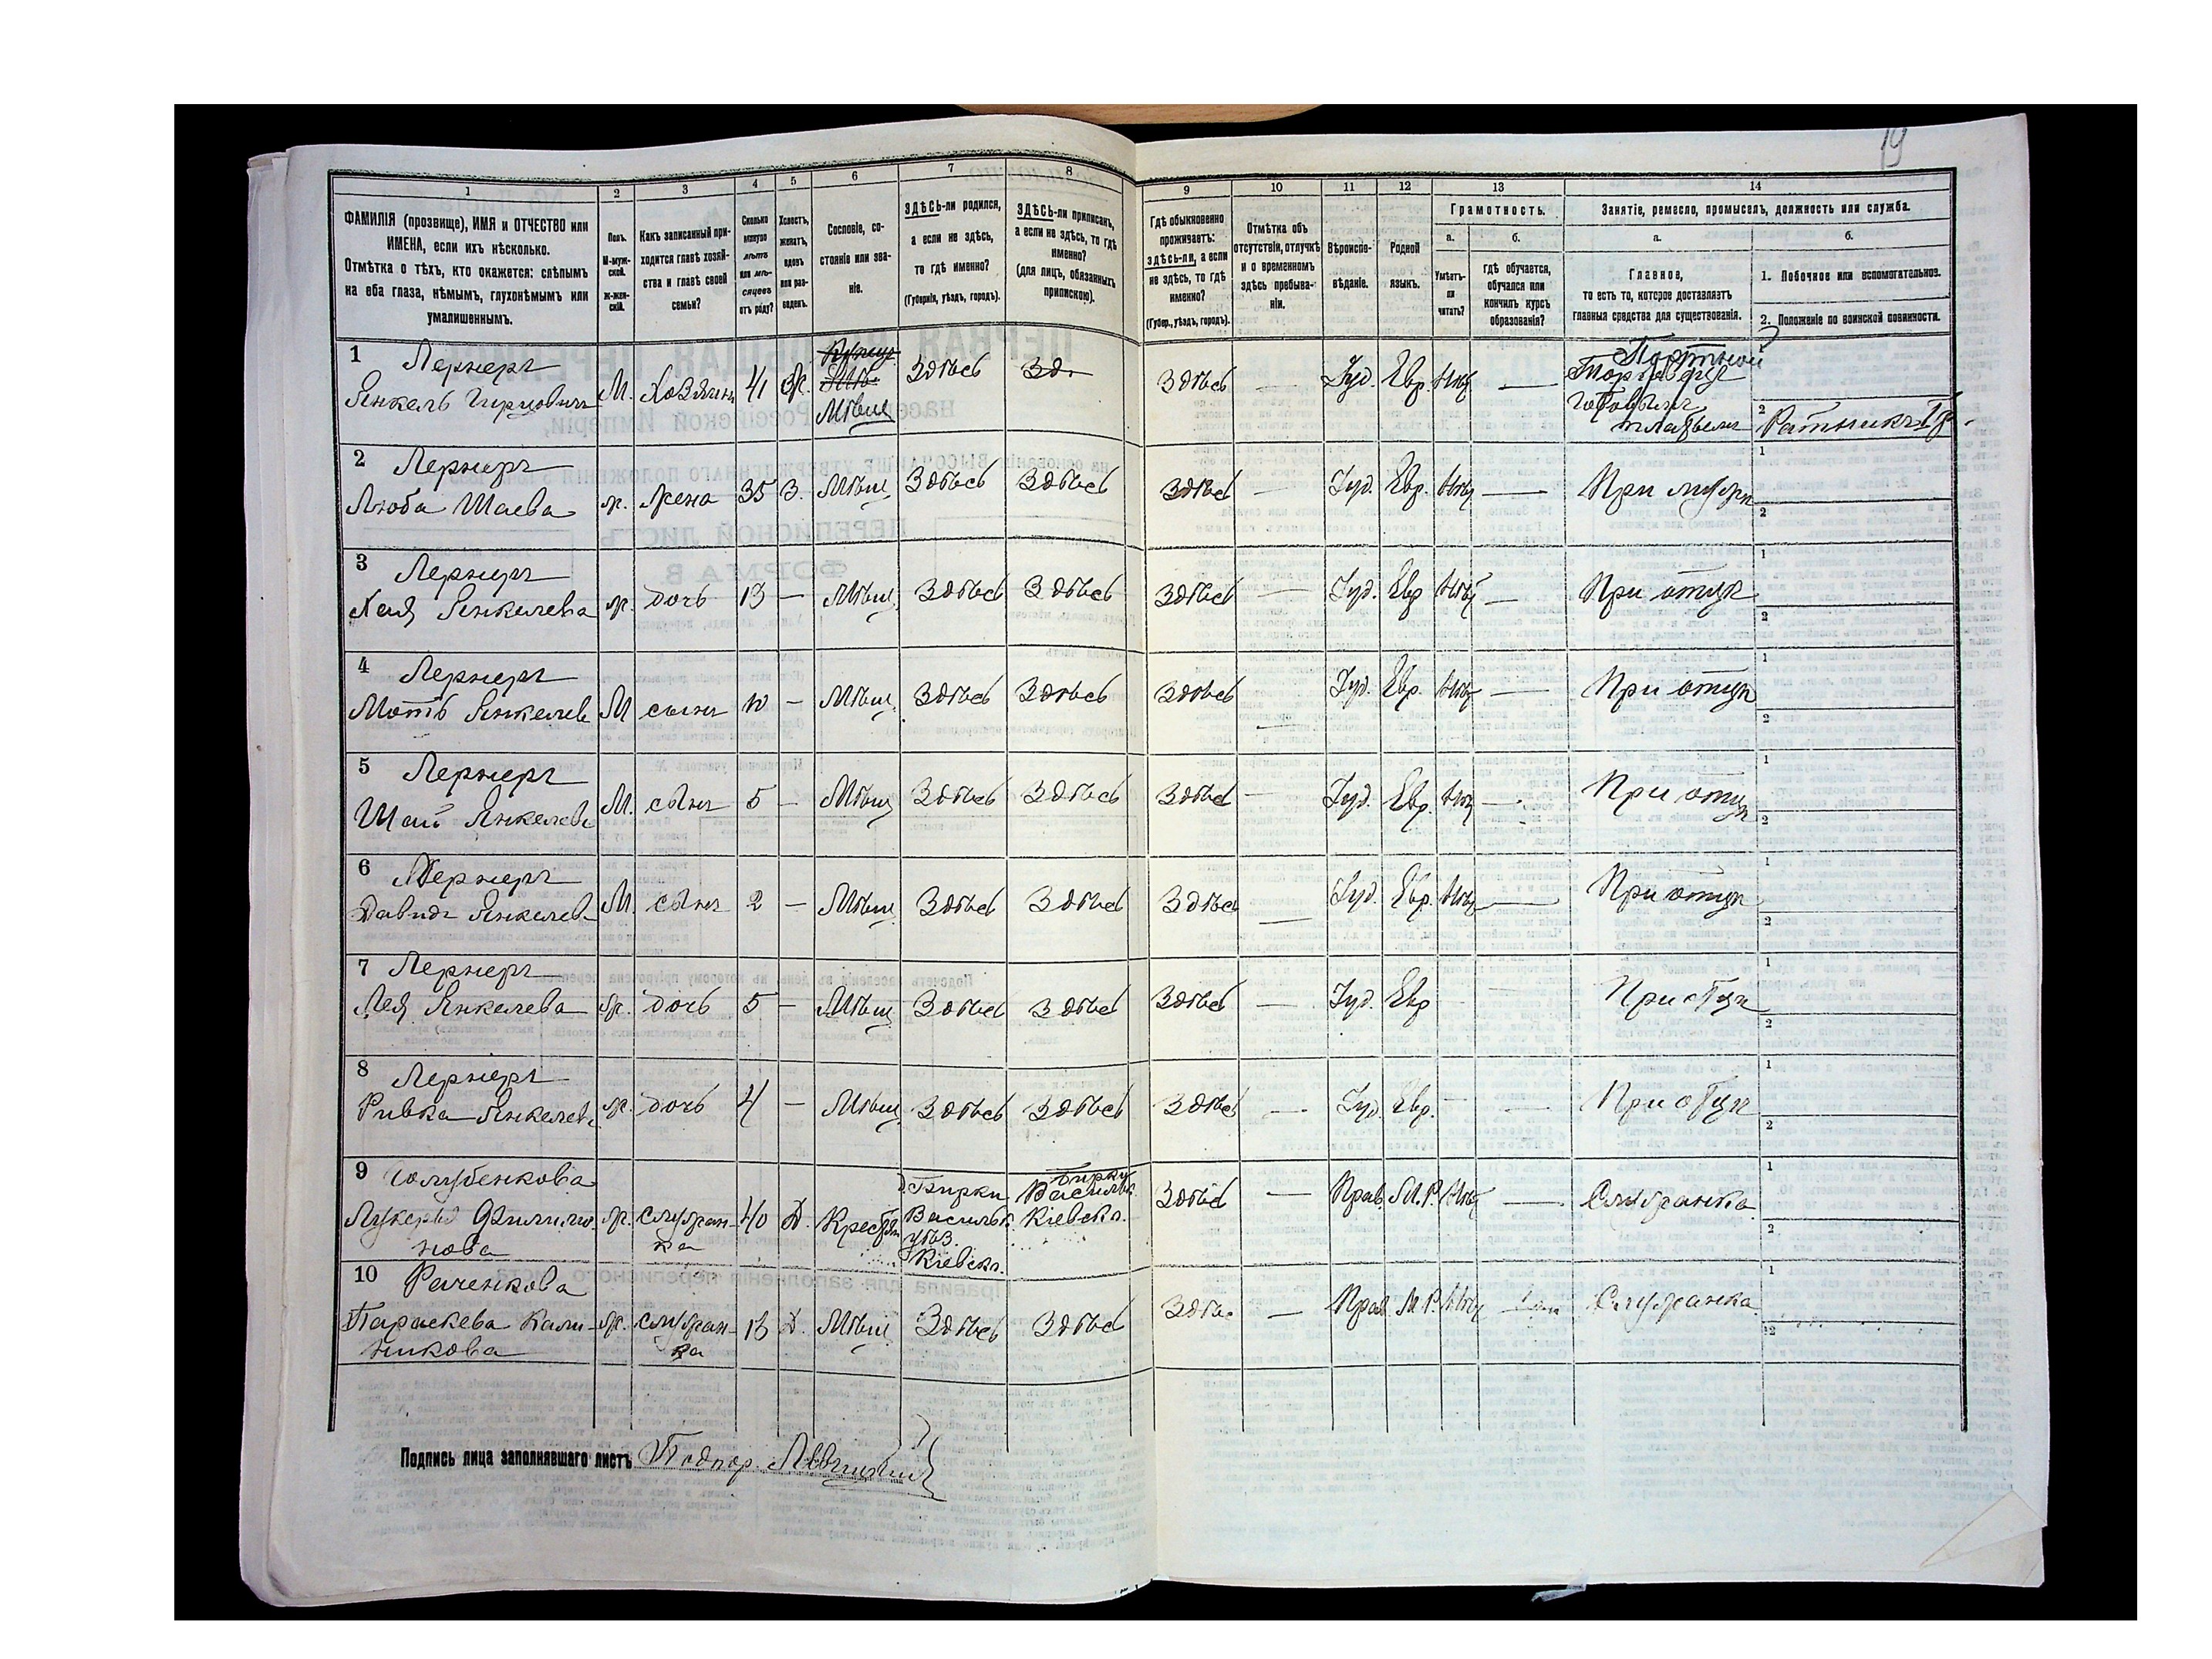 19
1 2 3 4 5 6 7 8 9 10 11 12 13 14
ФАМИЛІЯ (прозвище), ИМЯ и ОТЧЕСТВО или
ИМЕНА, если ихъ нѣсколько.
Отмѣтка о тѣхъ, кто окажется: слѣпымъ
на оба глаза, нѣмымъ, глухонѣмымъ или
умалишеннымъ.
Полъ.
М-муж-
ской.
ж-жен-
скій.
Какъ записанный при-
ходится главѣ хозяй-
ства и главѣ своей
семьи?
Сколько
минуло
лѣтъ
или мѣ-
сяцевъ
отъ роду?
Холостъ,
женатъ,
вдовъ
или раз-
веденъ.
Сословіе, со-
стояніе или зва-
ніе.
ЗДѢСЬ-ли родился,
а если не здѣсь,
то гдѣ именно?
(Губернія, уѣздъ, городъ).
ЗДѢСЬ-ли приписанъ,
а если не здѣсь, то гдѣ
именно?
(для лицъ, обязанныхъ
припискою).
Гдѣ обыкновенно
проживаетъ:
здѣсь-ли, а если
не здѣсь, то гдѣ
именно?
(Губер., уѣздъ, городъ).
Отмѣтка объ
отсутствіи, отлучкѣ
и о временномъ
здѣсь пребыва-
ніи.
Вѣроиспо-
вѣданіе.
Родной
языкъ.
Грамотность.
а.
Умѣетъ-
ли
читать?
б.
гдѣ обучается,
обучался или
кончилъ курсъ
образованія?
Занятіе, ремесло, промыселъ, должность или служба.
а.
Главное,
то есть то, которое доставляетъ
главныя средства для существованія.
б.
1. Побочное или вспомогательное.
2. Положеніе по воинской повинности.
1 Лернеръ
Янкель Герцовичъ М. Хозяинъ 41 Ж. Мѣщ Здѣсь Зд. Здѣсь — Іуд. Евр. Нѣт — Портной
Торговецъ
готовымъ
платьемъ
2 Ратникъ
2 Лернеръ
Люба Шаева ж. жена 35 З. Мѣщ Здѣсь Здѣсь Здѣсь — Іуд. Евр. Нѣт — При мужѣ
3 Лернеръ
Хая Янкелева ж. дочь 13 — Мѣщ. Здѣсь Здѣсь Здѣсь — Іуд. Евр Нѣт — При отцѣ
4 Лернеръ
Мотъ Янкелев М сынъ 10 — Мѣщ. Здѣсь Здѣсь Здѣсь — Іуд. Евр. Нѣт — При отцѣ
5 Лернеръ
Шай Янкелев М. сынъ 5 — Мѣщ Здѣсь Здѣсь Здѣсь — Іуд. Евр. Нѣт — При отцѣ
6 Лернеръ
Давидъ Янкелев М. сынъ 2 — Мѣщ Здѣсь Здѣсь Здѣсь — Іуд. Евр. Нѣт — При отцѣ
7 Лернеръ
Лея Янкелева ж. дочь 5 — Мѣщ Здѣсь Здѣсь Здѣсь — Іуд. Евр — При отцѣ
8 Лернеръ
Ривка Янкелев ж. дочь 4 — Мѣщ. Здѣсь Здѣсь Здѣсь — Іуд. Евр. — При отцѣ
9 Голубенкова
Лукерья Филимо-
нова ж. служан-
ка 40 Д. Крест д. Бирки
Васильк.
уѣз.
Кіевск. Бирки
Васильк.
Кіевск. Здѣсь — Прав. М.Р. Нѣт — Служанка
10 Раченкова
Параскева Кали-
никова ж. служан-
ка 13 Д. Мѣщ Здѣсь Здѣсь Здѣ. — Прав М.Р. Нѣт Служанка
Подпись лица заполнявшаго листъ Подпор.